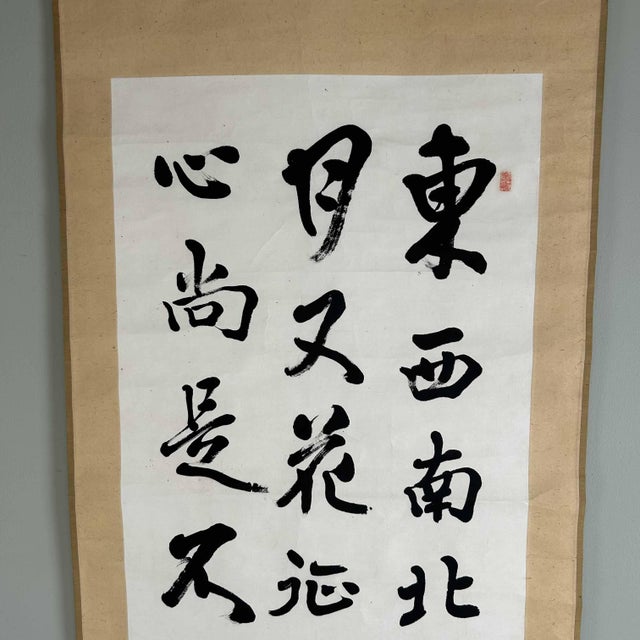 東西南北
月又花征
心尚是不